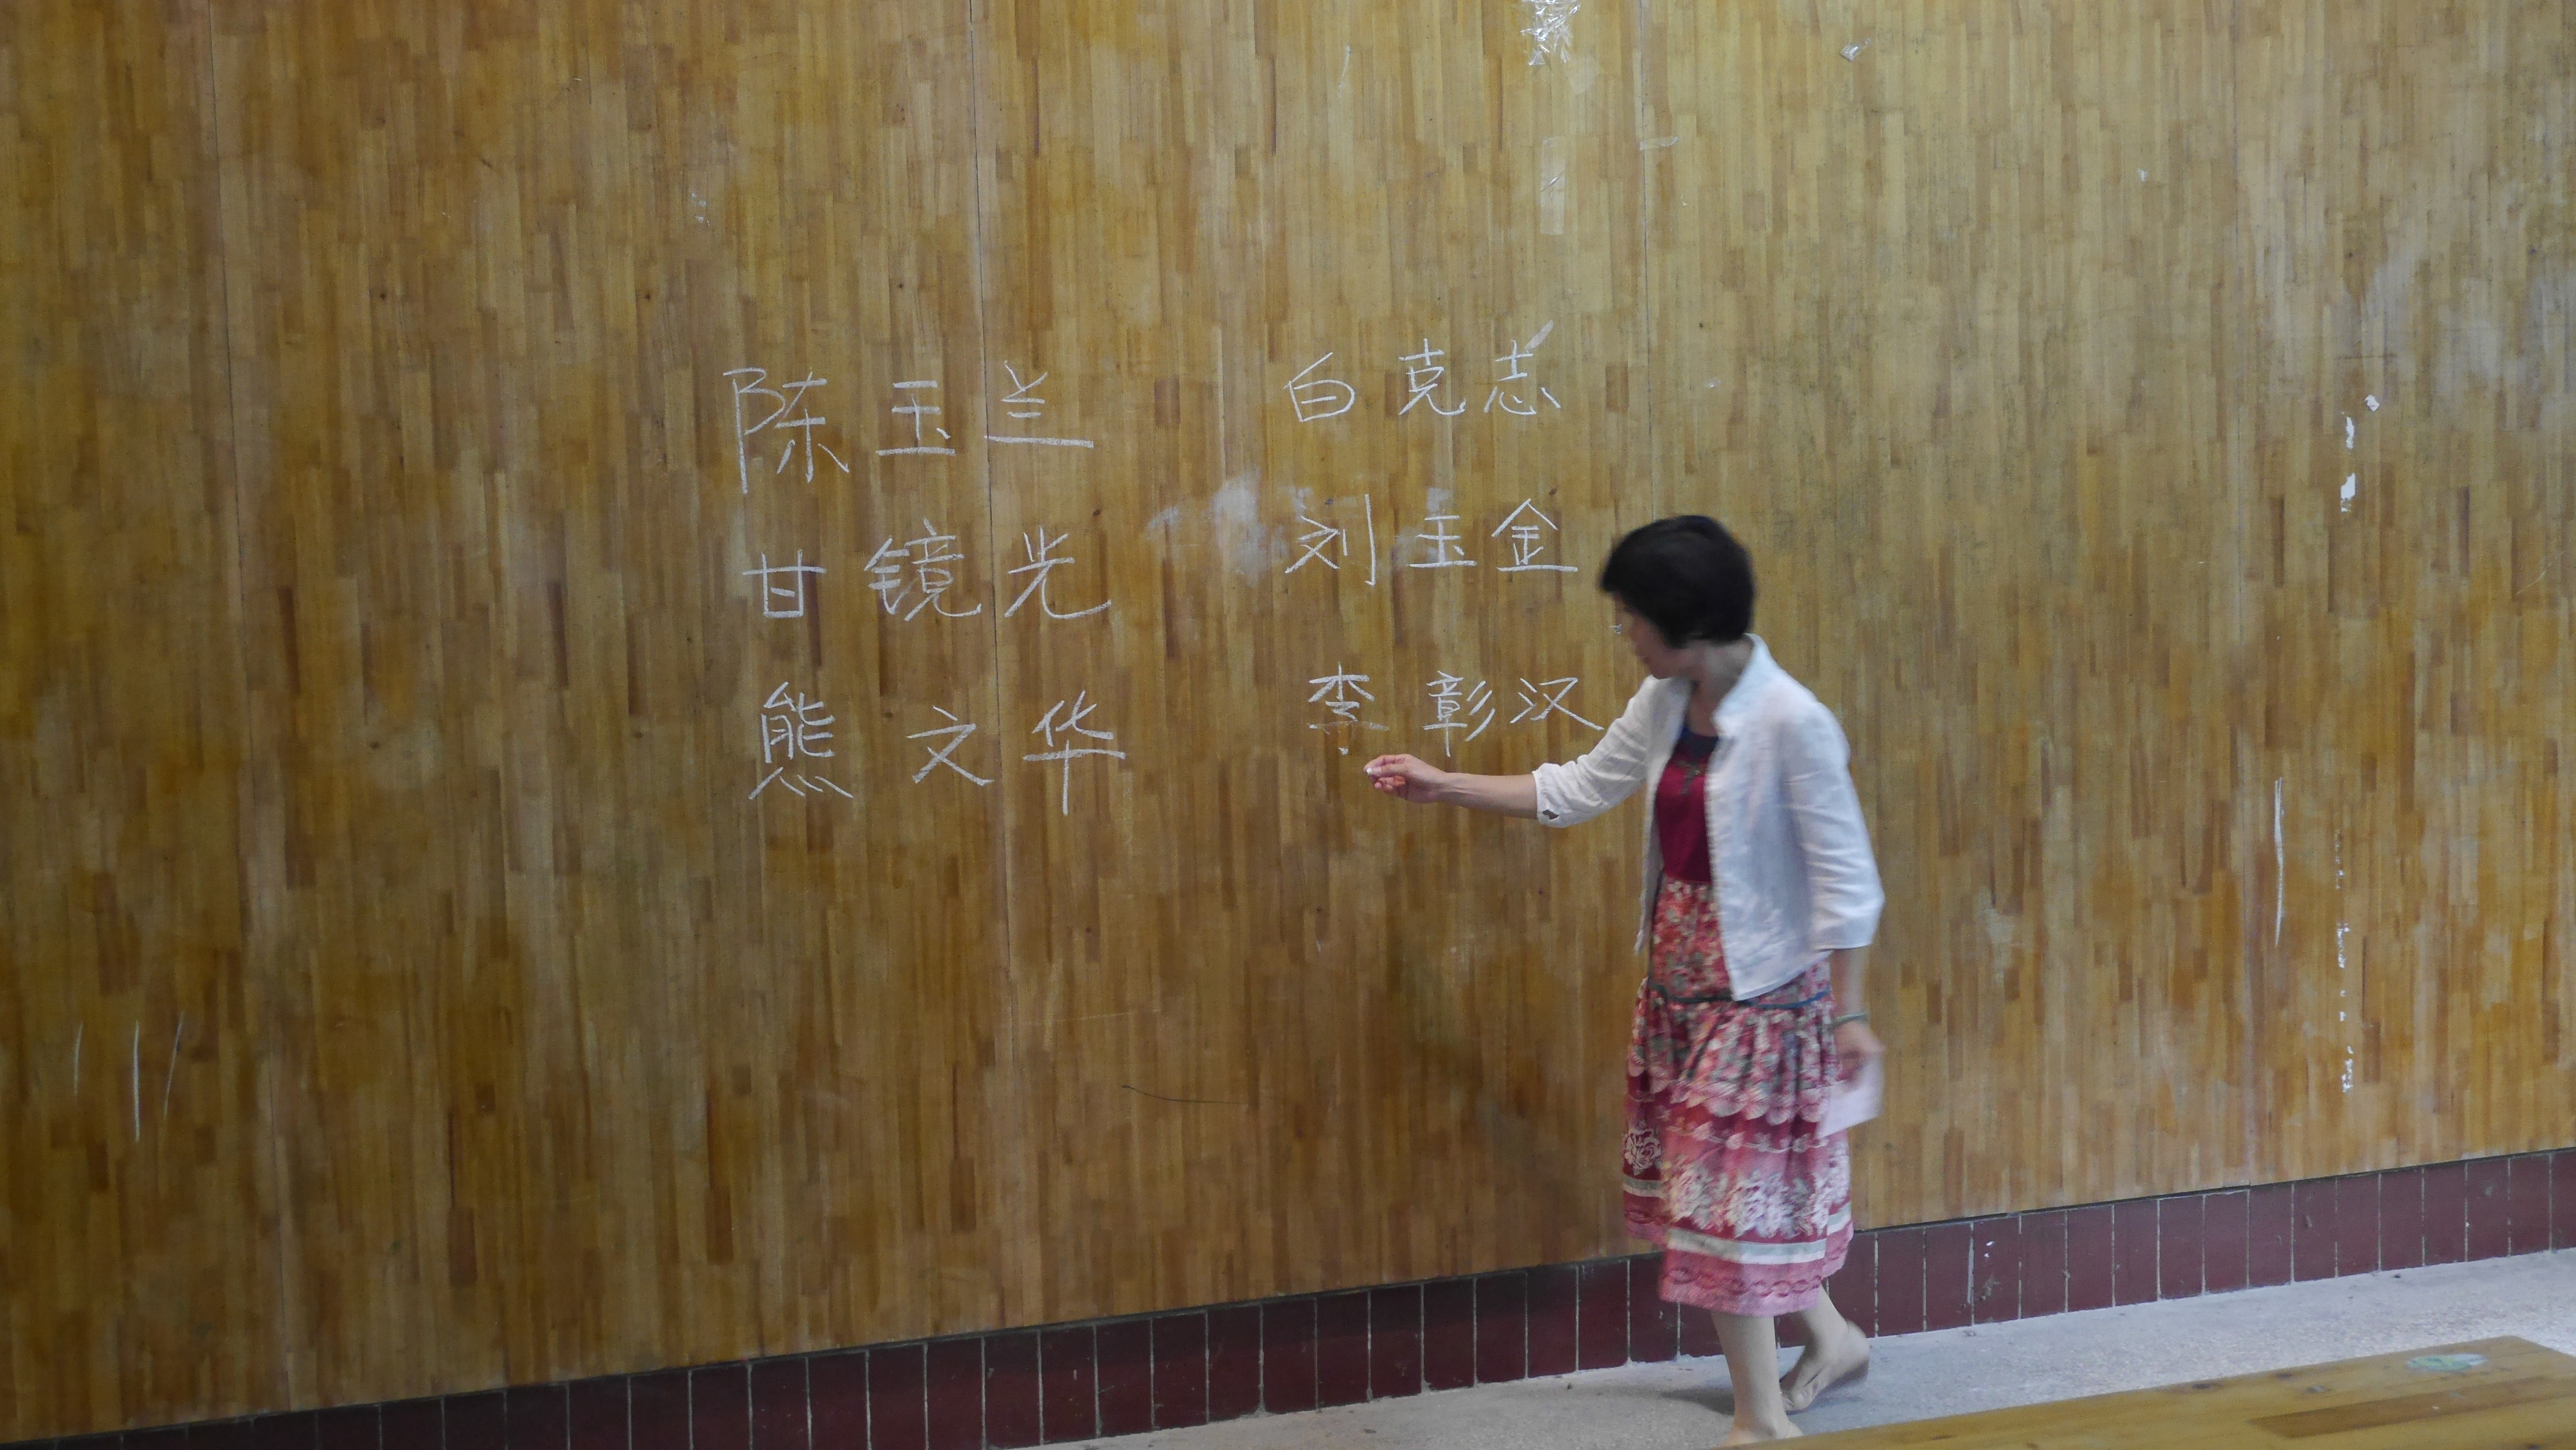 陈玉兰 白克志
甘镜光 刘玉金
熊文华 李彰汉